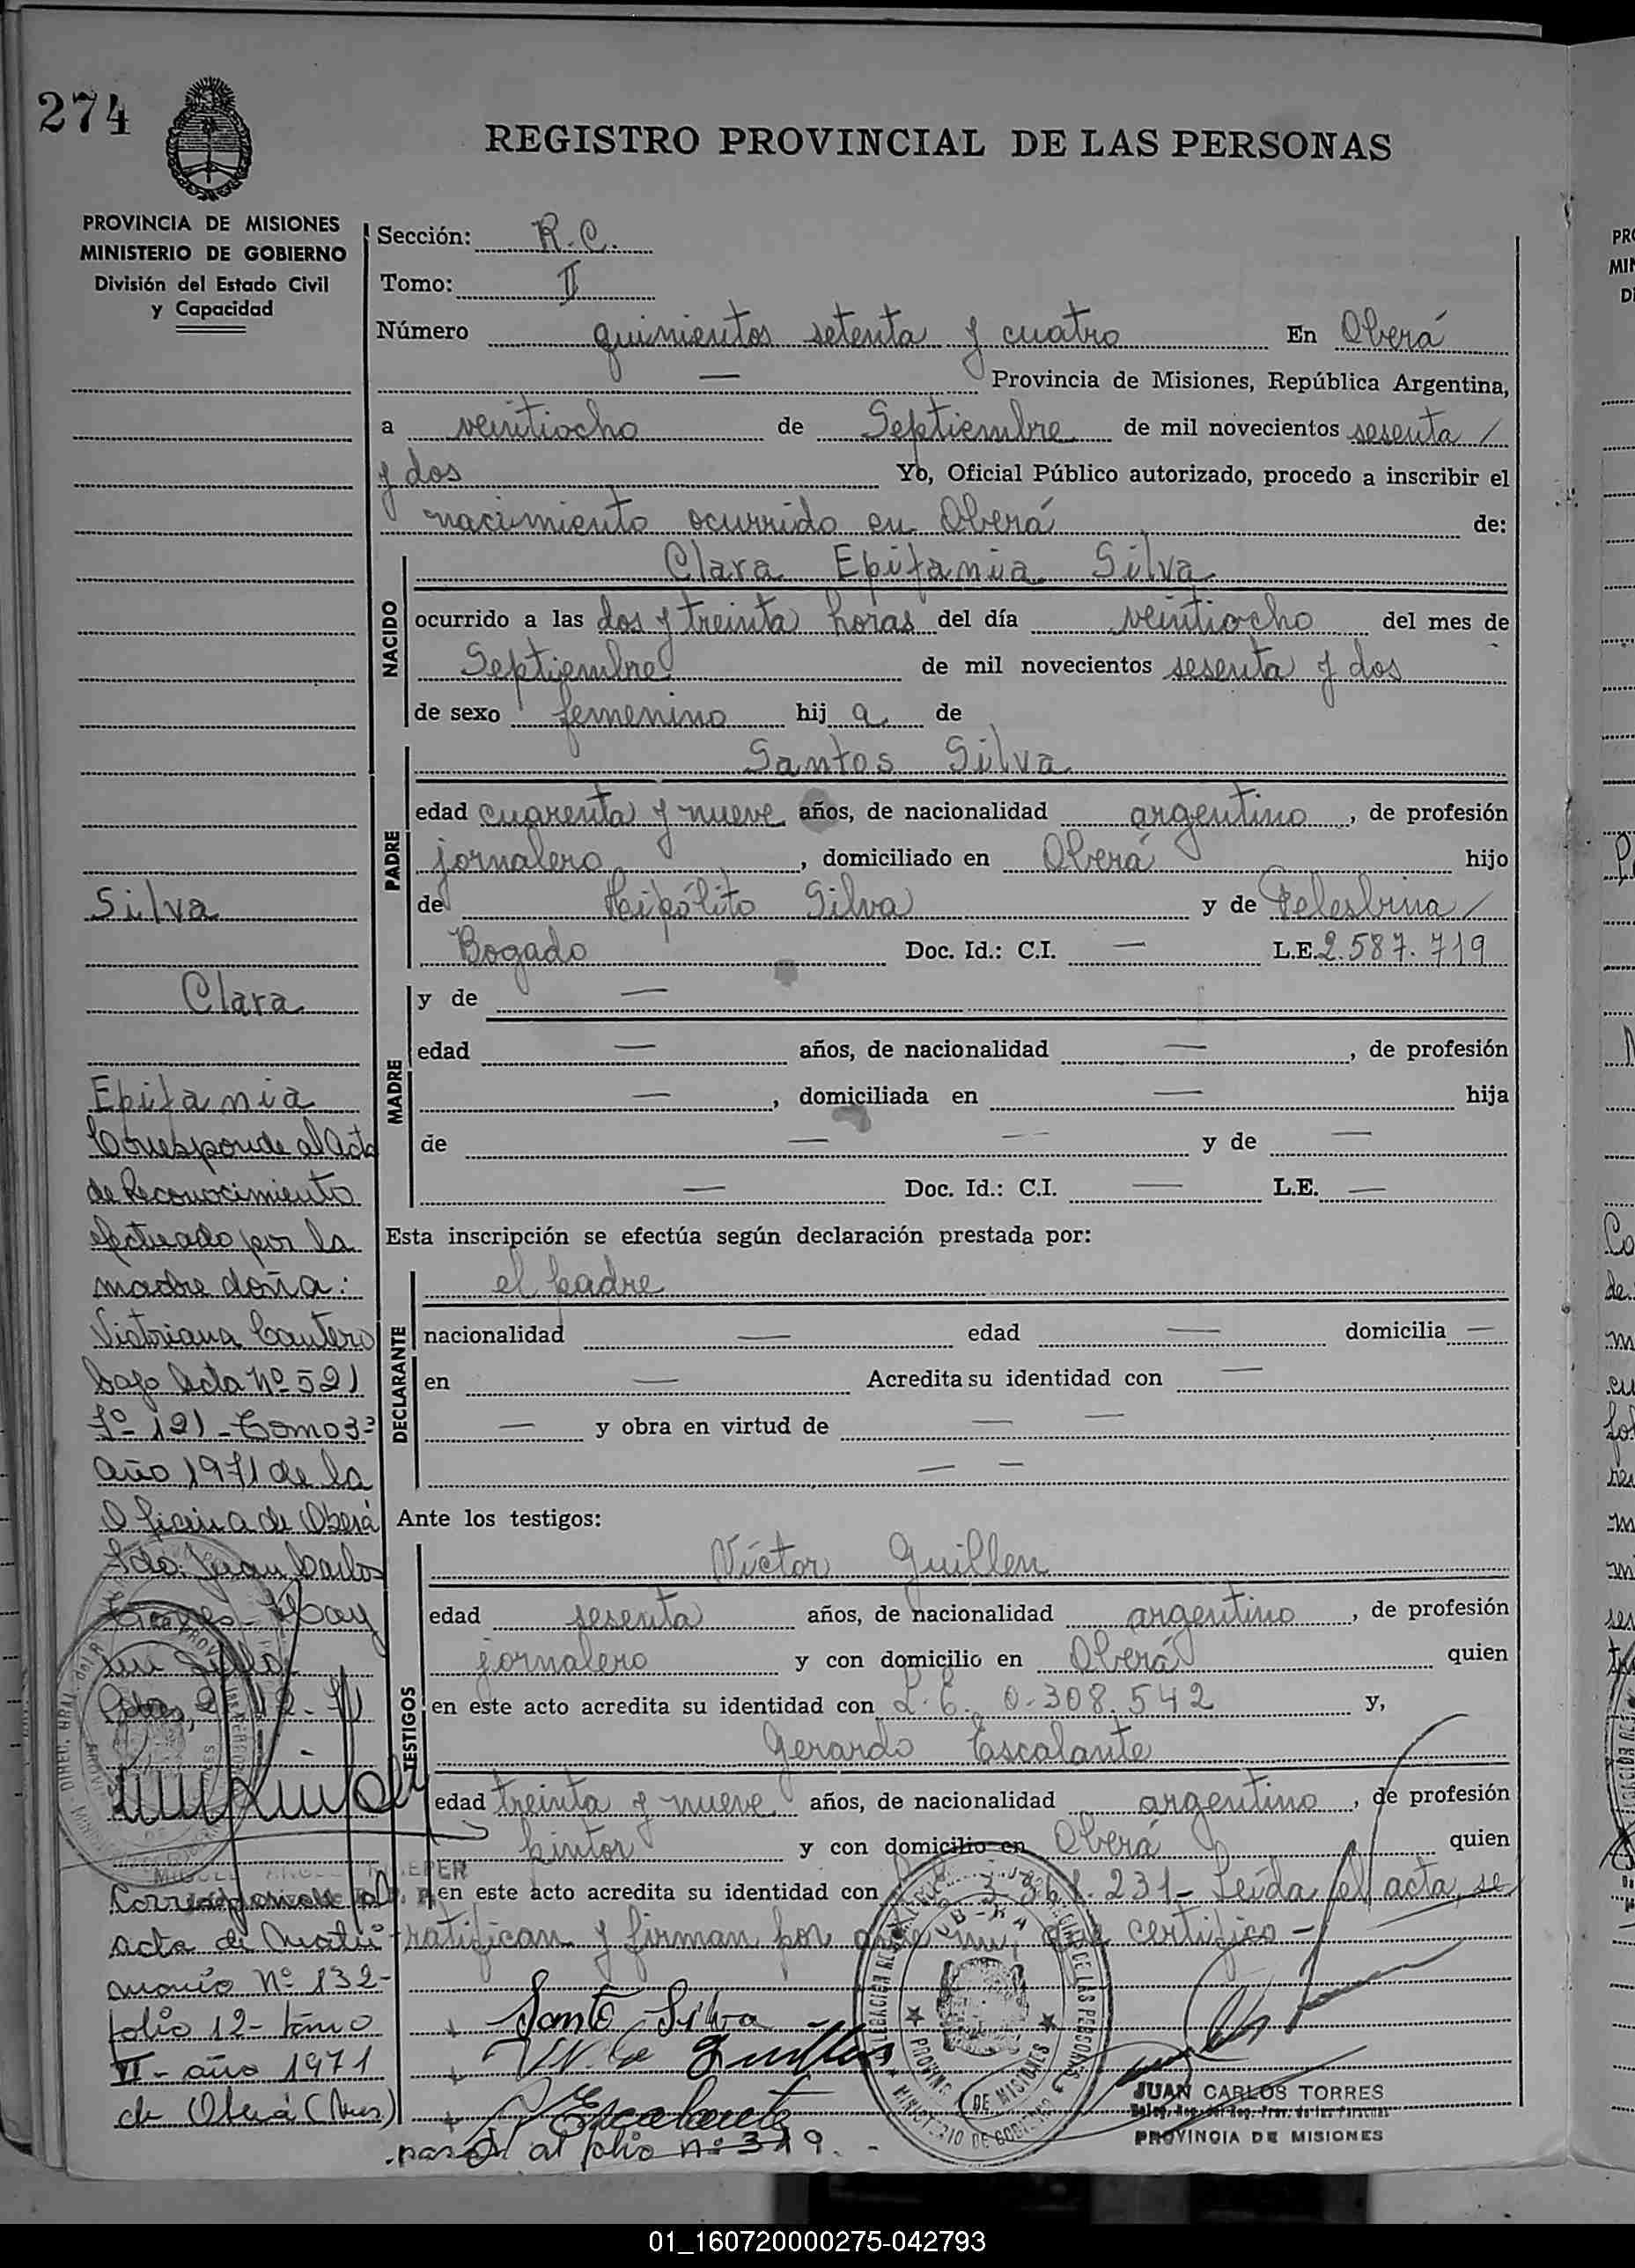 274
REGISTRO PROVINCIAL DE LAS PERSONAS
PROVINCIA DE MISIONES
MINISTERIO DE GOBIERNO
División del Estado Civil
y Capacidad
Sección: R.C.
Tomo: II
Número quinientos setenta y cuatro En Oberá
— Provincia de Misiones, República Argentina,
a veintiocho de Septiembre de mil novecientos sesenta /
y dos Yo, Oficial Público autorizado, procedo a inscribir el
nacimiento ocurrido en Oberá de:
NACIDO
Clara Epifania Silva
ocurrido a las dos y treinta horas del día veintiocho del mes de
Septiembre de mil novecientos sesenta y dos
de sexo femenino hij a de
PADRE
Santos Silva
edad cuarenta y nueve años, de nacionalidad argentino, de profesión
jornalero, domiciliado en Oberá hijo
de Hipólito Silva y de Celesbina /
Bogado Doc. Id.: C.I. — L.E. 2.587.719
MADRE
y de —
edad — años, de nacionalidad —, de profesión
—, domiciliada en — hija
de — — y de —
— Doc. Id.: C.I. — L.E. —
Esta inscripción se efectúa según declaración prestada por:
DECLARANTE
el padre
nacionalidad — edad — domicilia —
en — Acredita su identidad con —
— y obra en virtud de — —
— —
Ante los testigos:
TESTIGOS
Víctor Guillen
edad sesenta años, de nacionalidad argentino, de profesión
jornalero y con domicilio en Oberá quien
en este acto acredita su identidad con L.E. 0.308.542 y,
Gerardo Escalante
edad treinta y nueve años, de nacionalidad argentino, de profesión
pintor y con domicilio en Oberá quien
en este acto acredita su identidad con 231- Leída el acta, se
ratifican y firman por ante mi, que certifico -
Santo Silva
Guillen
Escalante
pasó al folio nº 319. -
JUAN CARLOS TORRES
PROVINCIA DE MISIONES
Silva
Clara
Epifania
Corresponde al Acta
de Reconocimiento
efectuado por la
madre doña:
Victoriana Cantero
bajo Acta Nº 521
Fº 121 - Tomo 3º
año 1971 de la
Oficina de Oberá
Fdo: Juan Carlos
Torres - Hay
un Sello.
Corresponde al
acta de Matri
monio Nº 132-
folio 12- tomo
VI - año 1971
de Oberá (Mnes)
01_160720000275-042793